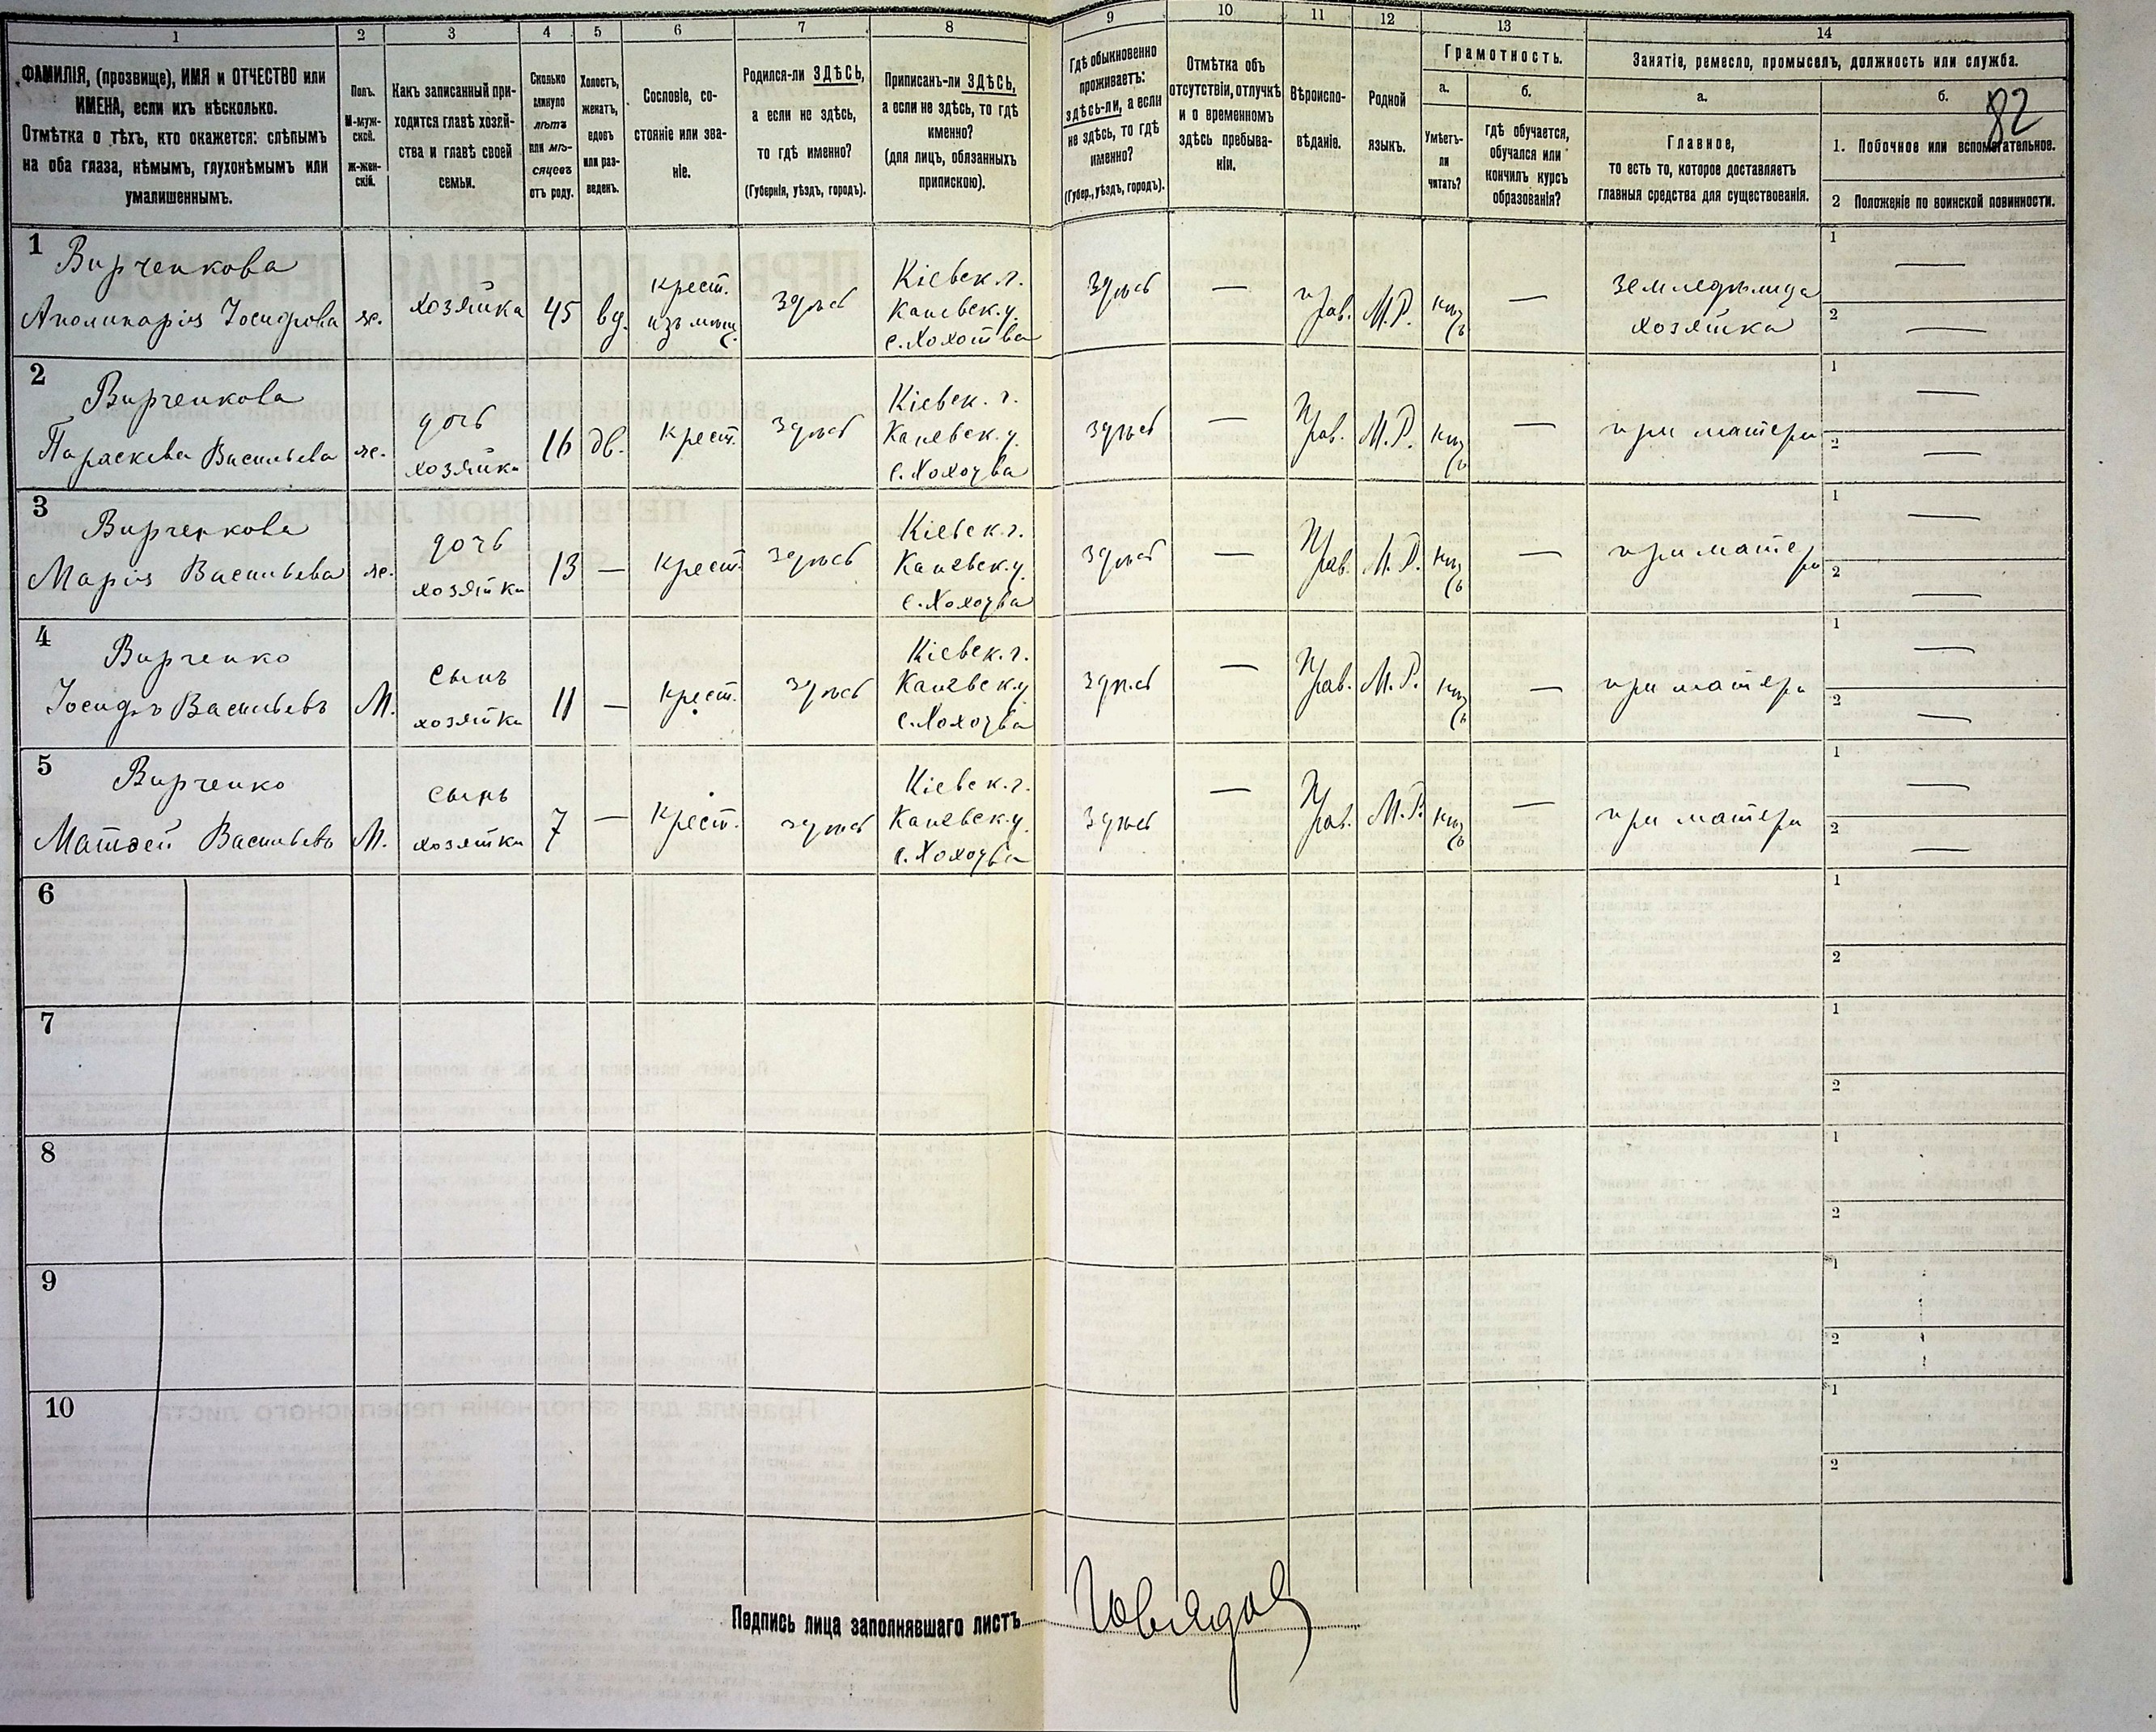 1 2 3 4 5 6 7 8 9 10 11 12 13 14
ФАМИЛІЯ, (прозвище), ИМЯ и ОТЧЕСТВО или
ИМЕНА, если ихъ нѣсколько.
Отмѣтка о тѣхъ, кто окажется: слѣпымъ
на оба глаза, нѣмымъ, глухонѣмымъ или
умалишеннымъ.
Полъ.
М-муж-
ской.
ж-жен-
скій.
Какъ записанный при-
ходится главѣ хозяй-
ства и главѣ своей
семьи.
Сколько
минуло
лѣтъ
или мѣ-
сяцевъ
отъ роду.
Холостъ,
женатъ,
вдовъ
или раз-
веденъ.
Сословіе, со-
стояніе или зва-
ніе.
Родился-ли ЗДѢСЬ,
а если не здѣсь,
то гдѣ именно?
(Губернія, уѣздъ, городъ).
Приписанъ-ли ЗДѢСЬ,
а если не здѣсь, то гдѣ
именно?
(для лицъ, обязанныхъ
припискою).
Гдѣ обыкновенно
проживаетъ:
здѣсь-ли, а если
не здѣсь, то гдѣ
именно?
(Губер., уѣздъ, городъ).
Отмѣтка объ
отсутствіи, отлучкѣ
и о временномъ
здѣсь пребыва-
ніи.
Вѣроиспо-
вѣданіе.
Родной
языкъ.
Грамотность.
а.
Умѣетъ-
ли
читать?
б.
гдѣ обучается,
обучался или
кончилъ курсъ
образованія?
Занятіе, ремесло, промыселъ, должность или служба.
а.
Главное,
то есть то, которое доставляетъ
главныя средства для существованія.
б.
82
1. Побочное или вспомогательное.
2 Положеніе по воинской повинности.
1
Вирченкова
Аполинарія Іосифова
ж.
хозяйка
45
вд.
крест.
здѣсь
Кіевск. г.
Каневск. у.
здѣсь
—
прав.
М.Р.
—
земледѣлица
хозяйка
1 —
2 —
2
Вирченкова
Параскева Васильева
ж.
дочь
хозяйки
16
дв.
крест.
здѣсь
Кіевск. г.
Каневск. у.
здѣсь
—
Прав.
М.Р.
—
при матери
1 —
2 —
3
Вирченкова
Марія Васильева
ж.
дочь
хозяйки
13
—
крест.
здѣсь
Кіевск. г.
Каневск. у.
здѣсь
—
Прав.
М.Р.
—
при матери
1 —
2 —
4
Вирченко
Іосифъ Васильевъ
М.
сынъ
хозяйки
11
—
крест.
здѣсь
Кіевск. г.
Каневск. у.
здѣсь
—
Прав.
М.Р.
—
при матери
1 —
2 —
5
Вирченко
Матвей Васильевъ
М.
сынъ
хозяйки
7
—
крест.
здѣсь
Кіевск. г.
Каневск. у.
здѣсь
—
Прав.
М.Р.
—
при матери
1 —
2 —
6
1
2
7
1
2
8
1
2
9
1
2
10
1
2
Подпись лица заполнявшаго листъ